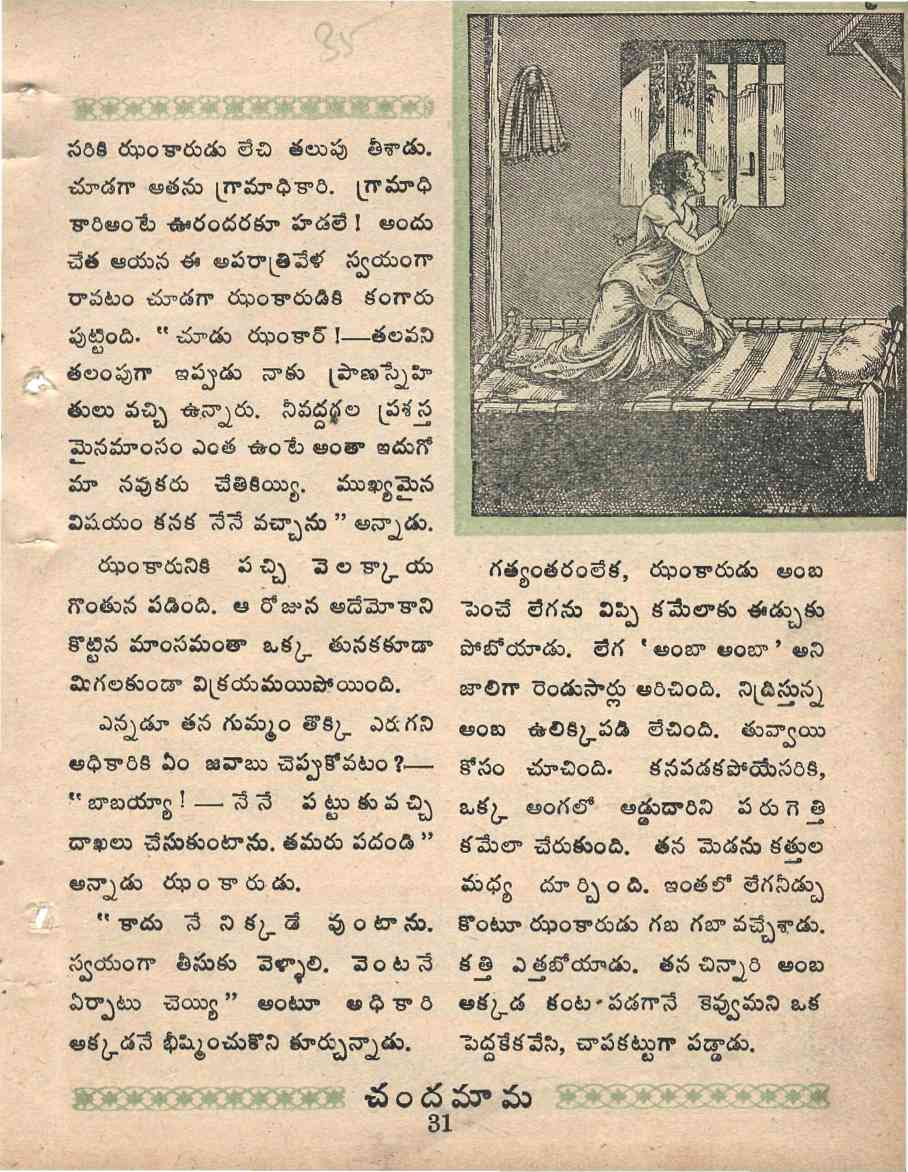 35
సరికి ఝంకారుడు లేచి తలుపు తీశాడు.
చూడగా అతను గ్రామాధికారి. గ్రామాధి
కారిఅంటే ఊరందరకూ హడలే! అందు
చేత ఆయన ఈ అపరాత్రివేళ స్వయంగా
రావటం చూడగా ఝంకారుడికి కంగారు
పుట్టింది. “చూడు ఝంకార్!—తలవని
తలంపుగా ఇప్పుడు నాకు ప్రాణస్నేహి
తులు వచ్చి ఉన్నారు. నీవద్దగల ప్రశస్త
మైనమాంసం ఎంత ఉంటే అంతా ఇదుగో
మా నవుకరు చేతికియ్యి. ముఖ్యమైన
విషయం కనక నేనే వచ్చాను” అన్నాడు.
ఝంకారునికి పచ్చి వెలక్కాయ
గొంతున పడింది. ఆ రోజున అదేమోకాని
కొట్టిన మాంసమంతా ఒక్క తునకకూడా
మిగలకుండా విక్రయమయిపోయింది.
ఎన్నడూ తన గుమ్మం తొక్కి ఎరగని
అధికారికి ఏం జవాబు చెప్పుకోవటం?—
“బాబయ్యా! — నేనే పట్టుకువచ్చి
దాఖలు చేసుకుంటాను. తమరు పదండి”
అన్నాడు ఝంకారుడు.
“కాదు నే నిక్కడే వుంటాను.
స్వయంగా తీసుకు వెళ్ళాలి. వెంటనే
ఏర్పాటు చెయ్యి” అంటూ అధికారి
అక్కడనే భీష్మించుకొని కూర్చున్నాడు.
గత్యంతరంలేక, ఝంకారుడు అంబ
పెంచే లేగను విప్పి కమేలాకు ఈడ్చుకు
పోబోయాడు. లేగ ‘అంబా అంబా’ అని
జాలిగా రెండుసార్లు అరిచింది. నిద్రిస్తున్న
అంబ ఉలిక్కిపడి లేచింది. తువ్వాయి
కోసం చూచింది. కనపడకపోయేసరికి,
ఒక్క అంగలో అడ్డుదారిని పరుగెత్తి
కమేలా చేరుకుంది. తన మెడను కత్తుల
మధ్య దూర్చింది. ఇంతలో లేగనీడ్చు
కొంటూ ఝంకారుడు గబ గబా వచ్చేశాడు.
కత్తి ఎత్తబోయాడు. తన చిన్నారి అంబ
అక్కడ కంట పడగానే కెవ్వుమని ఒక
పెద్దకేకవేసి, చాపకట్టుగా పడ్డాడు.
చందమామ
31